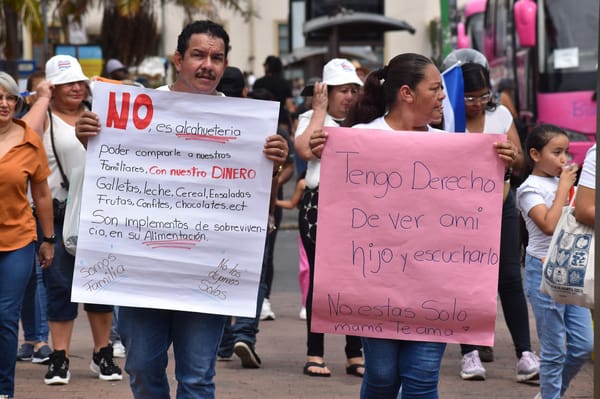 NO, es alcahueteria
poder comprarle a nuestros
Familiares, Con nuestro DINERO
Galletas, leche, Cereal, Ensaladas
Frutas, Confites, Chocolates, ect
Son implementos de sobreviven-
cia, en su Alimentación.
Somos
Familia
No los
dejemos
Solos
Tengo Derecho
De ver ami
hijo y escucharlo
No estas Solo
mamá Te ama